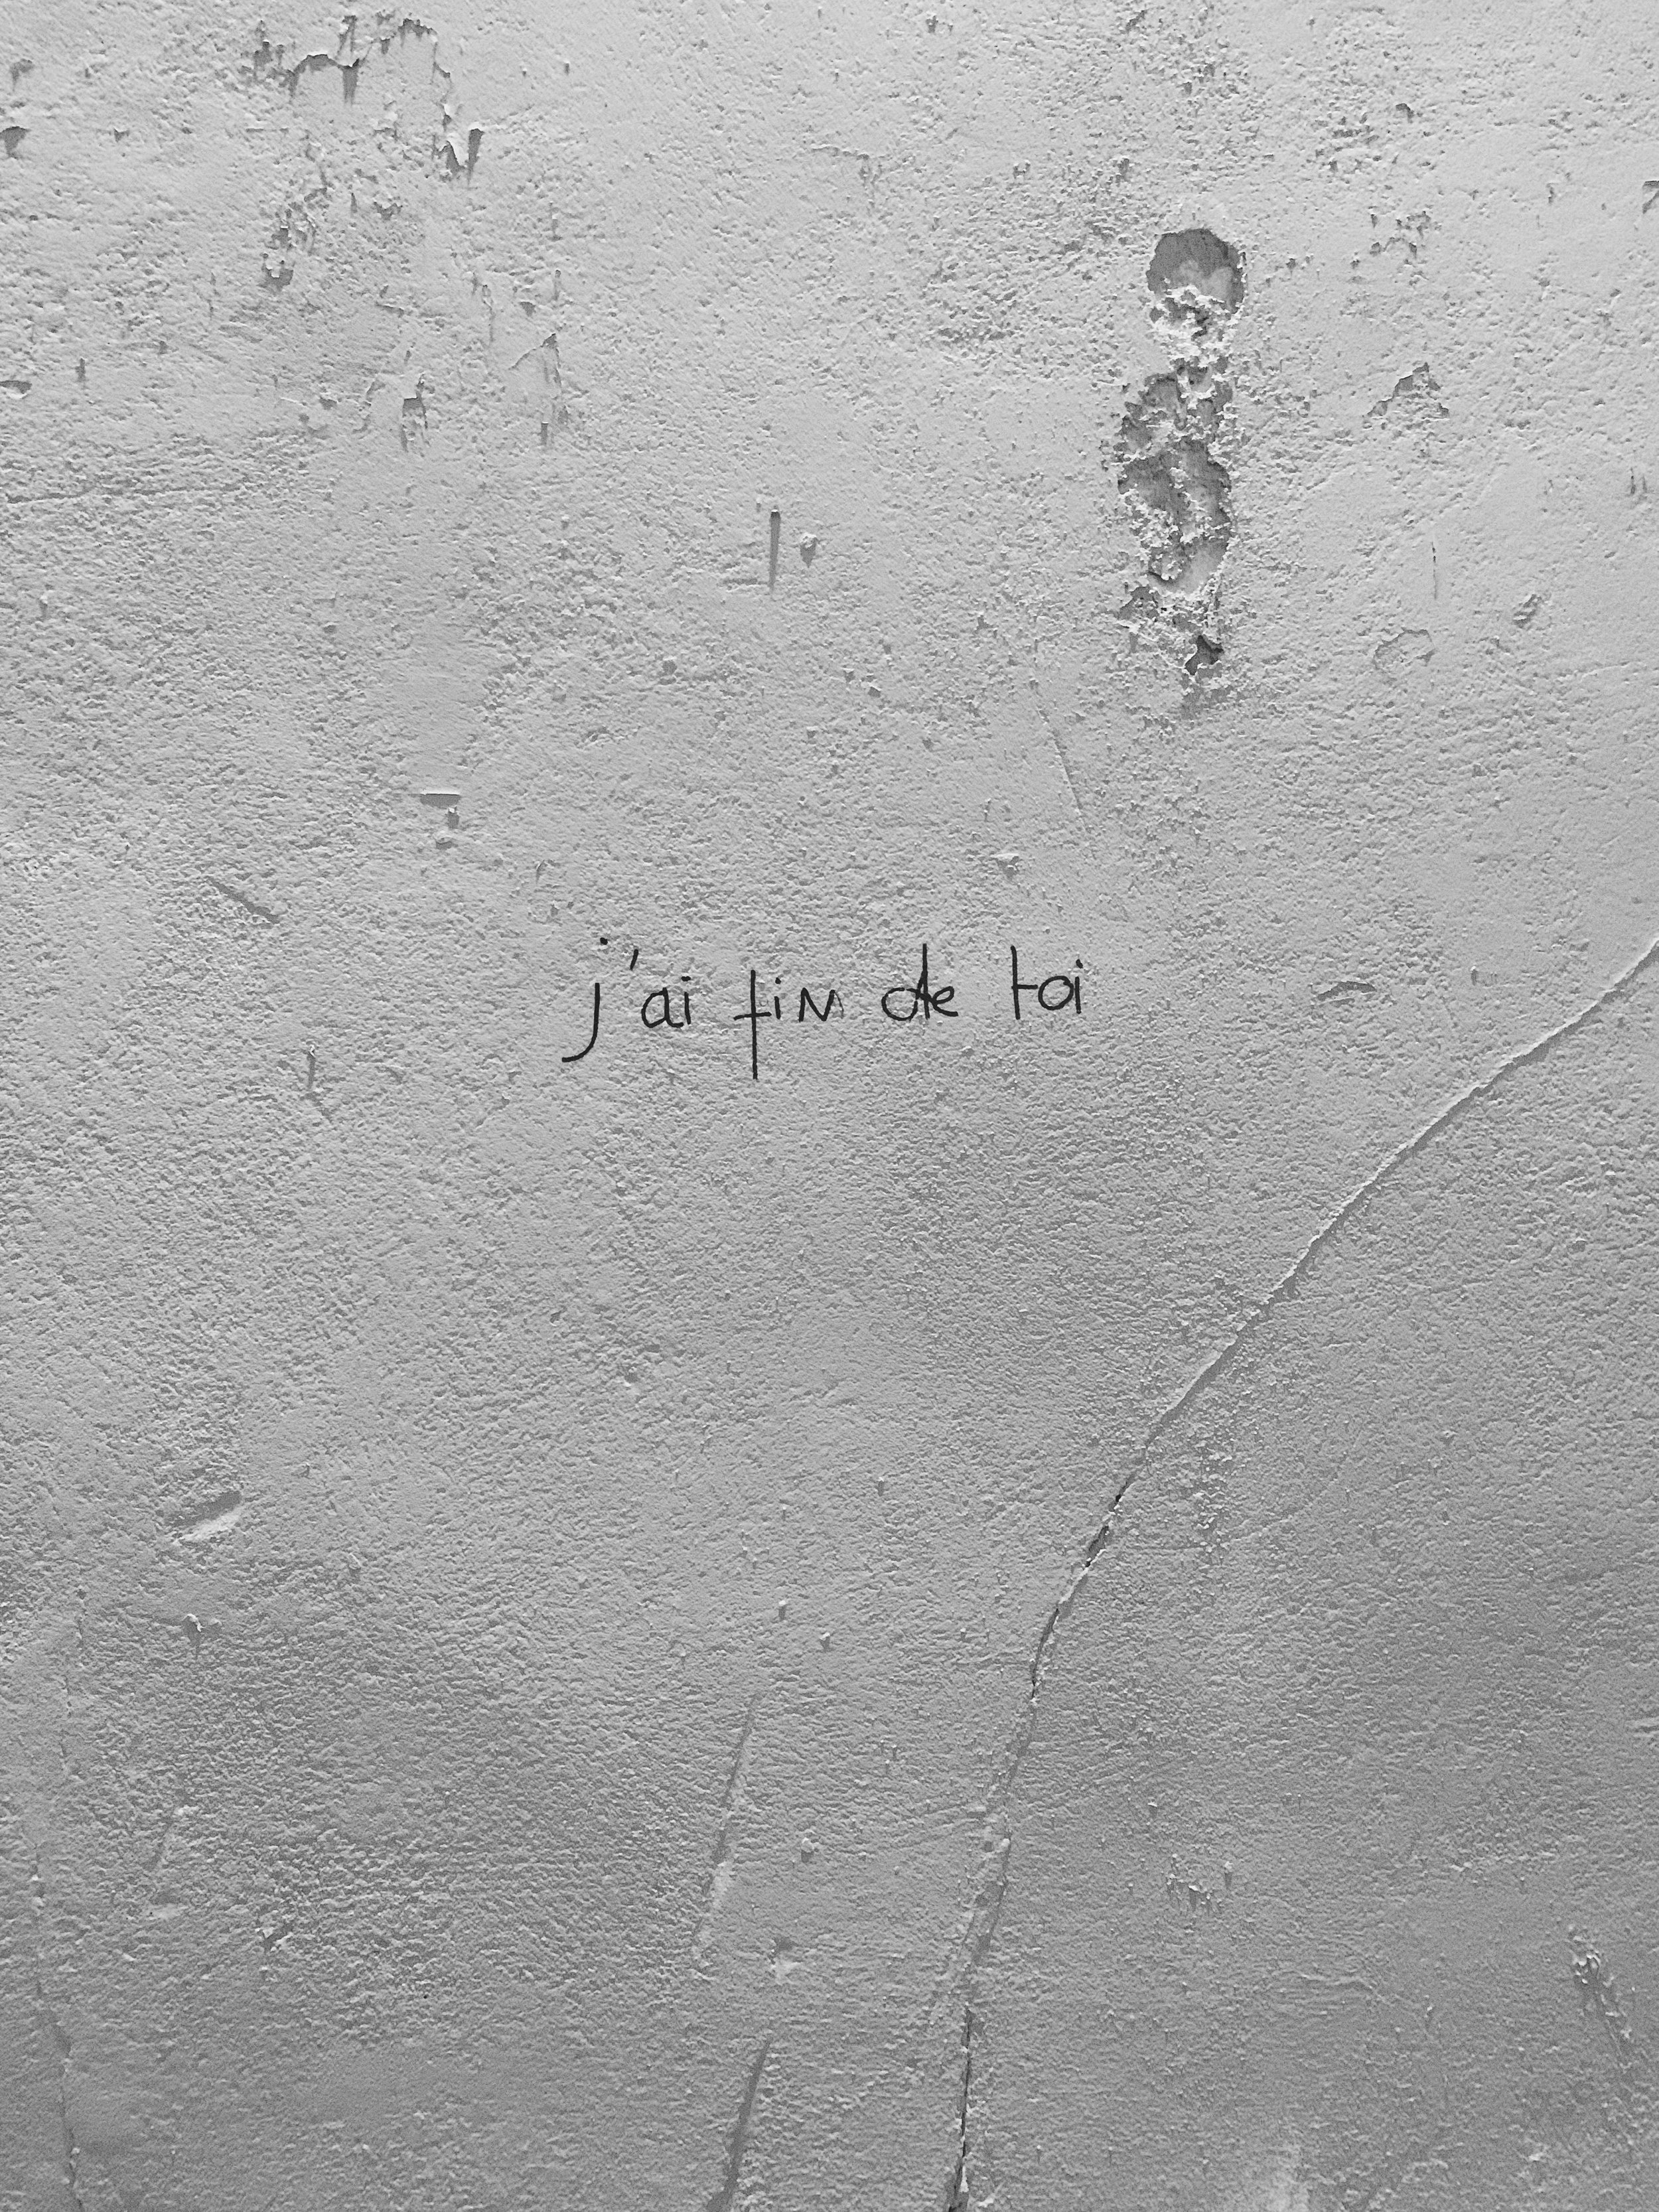 j'ai fin de toi